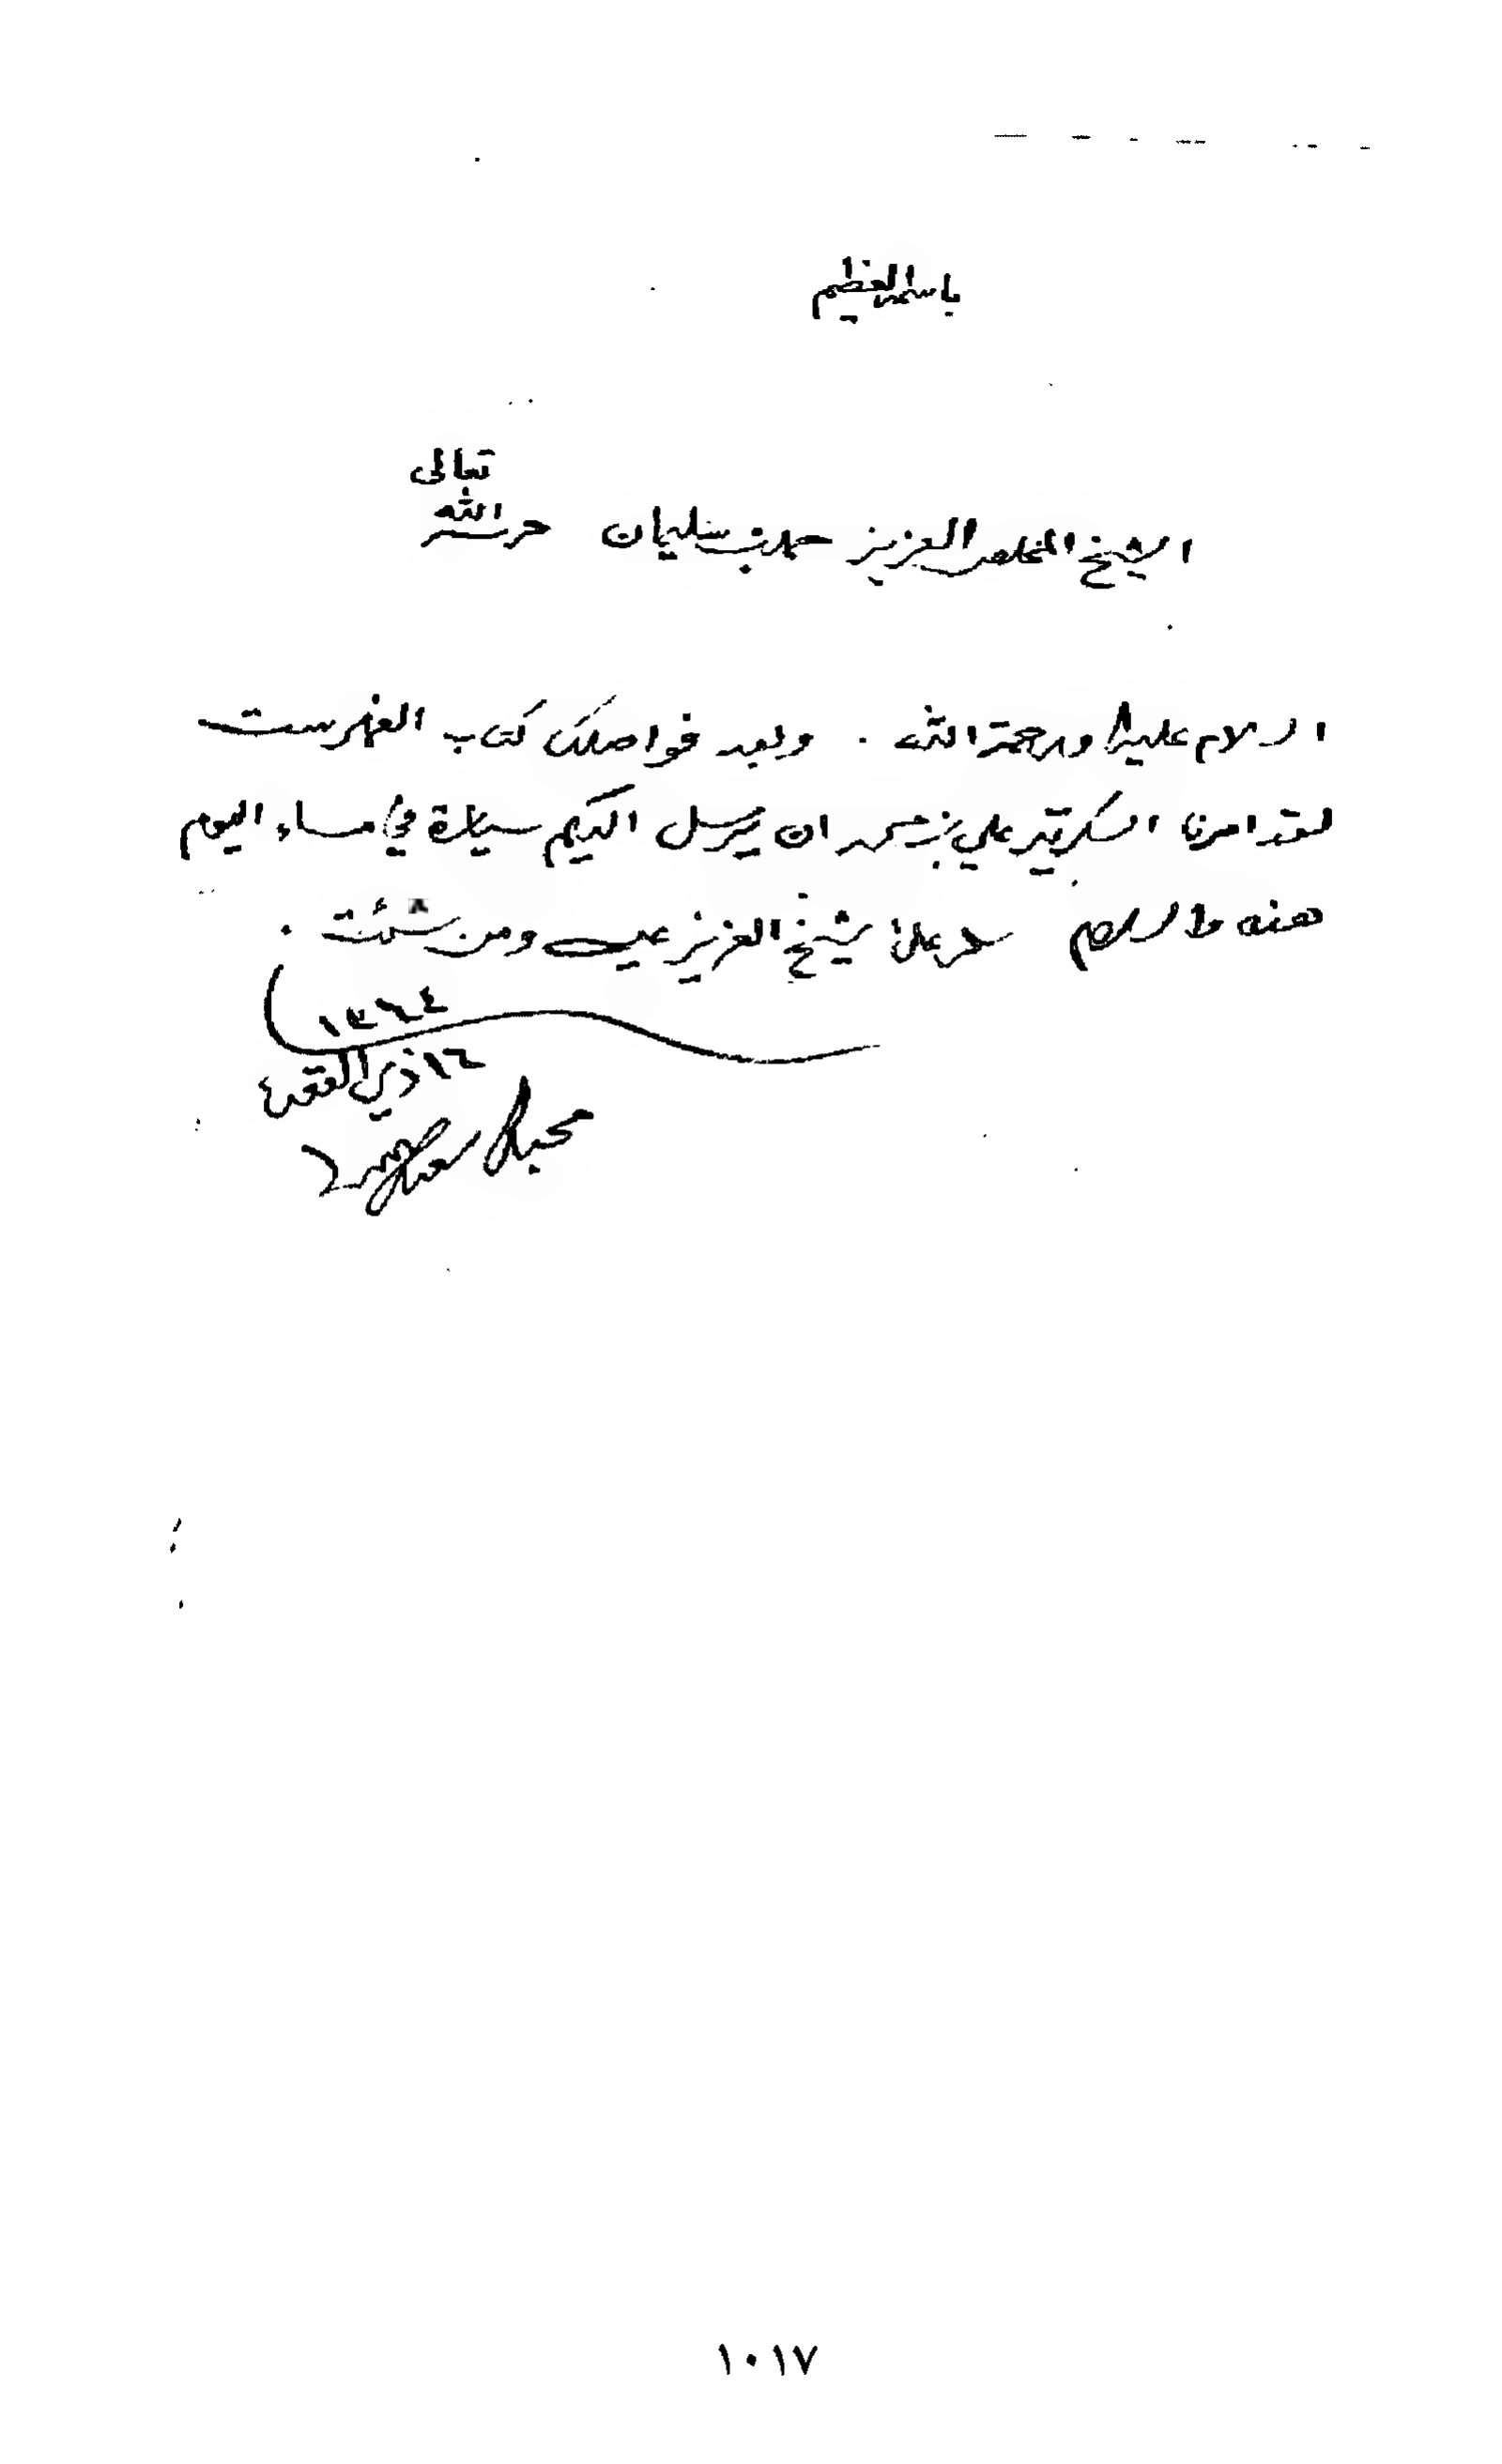 باسمه العظيم
تعالى
الشيخ المخلص العزيز حمد بن سليمان حرسه الله
السلام عليك ورحمة الله . وبعد فواصلك كتاب الفهرست
لقد امرنا السكرتير علي بن محمد ان يرسل اليكم سيارة في مساء اليوم
هذه والسلام سلم على الشيخ العزيز عيسى ومن شئت .
١٣٦٤
١٦ ذي القعدة
محبك
١٠١٧